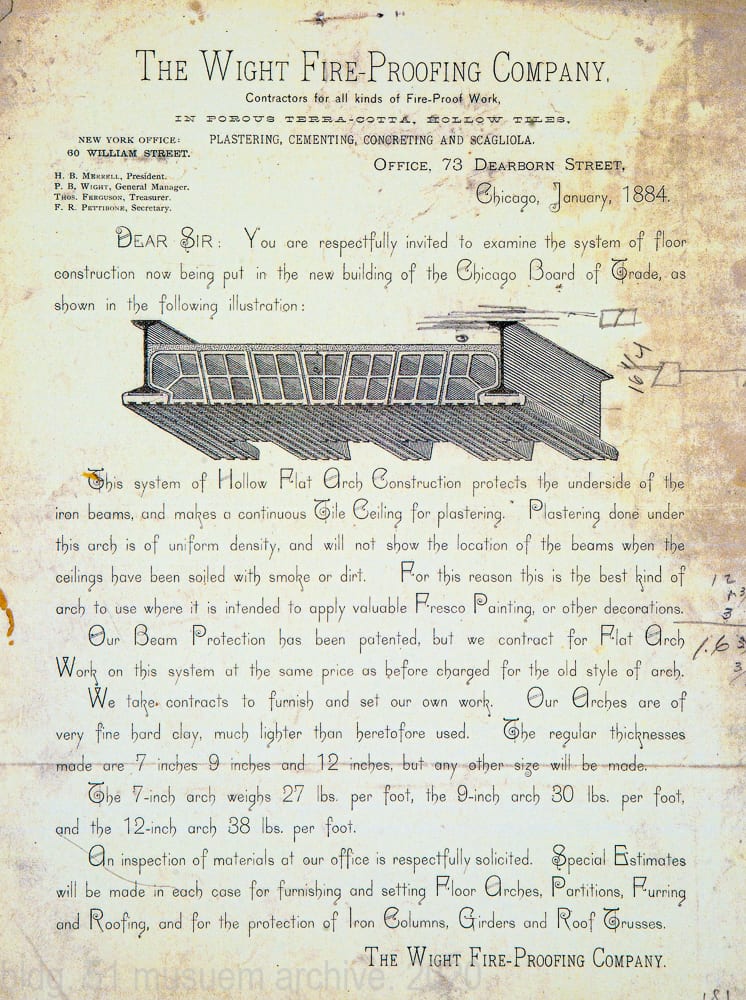 THE WIGHT FIRE-PROOFING COMPANY,
Contractors for all kinds of Fire-Proof Work,
IN POROUS TERRA-COTTA, HOLLOW TILES,
PLASTERING, CEMENTING, CONCRETING AND SCAGLIOLA.
NEW YORK OFFICE:
60 WILLIAM STREET.
OFFICE, 73 DEARBORN STREET,
H. B. MERRELL, President.
P. B. WIGHT, General Manager.
THOS. FERGUSON, Treasurer.
F. R. PETTIBONE, Secretary.
Chicago, January, 1884.
DEAR SIR: You are respectfully invited to examine the system of floor
construction now being put in the new building of the Chicago Board of Trade, as
shown in the following illustration:
16 1/4
This system of Hollow Flat Arch Construction protects the underside of the
iron beams, and makes a continuous Tile Ceiling for plastering. Plastering done under
this arch is of uniform density, and will not show the location of the beams when the
ceilings have been soiled with smoke or dirt. For this reason this is the best kind of
arch to use where it is intended to apply valuable Fresco Painting, or other decorations.
Our Beam Protection has been patented, but we contract for Flat Arch
Work on this system at the same price as before charged for the old style of arch.
We take contracts to furnish and set our own work. Our Arches are of
very fine hard clay, much lighter than heretofore used. The regular thicknesses
made are 7 inches 9 inches and 12 inches, but any other size will be made.
The 7-inch arch weighs 27 lbs. per foot, the 9-inch arch 30 lbs. per foot,
and the 12-inch arch 38 lbs. per foot.
An inspection of materials at our office is respectfully solicited. Special Estimates
will be made in each case for furnishing and setting Floor Arches, Partitions, Furring
and Roofing, and for the protection of Iron Columns, Girders and Roof Trusses.
THE WIGHT FIRE-PROOFING COMPANY.
bldg. 51 musuem archive. 2020